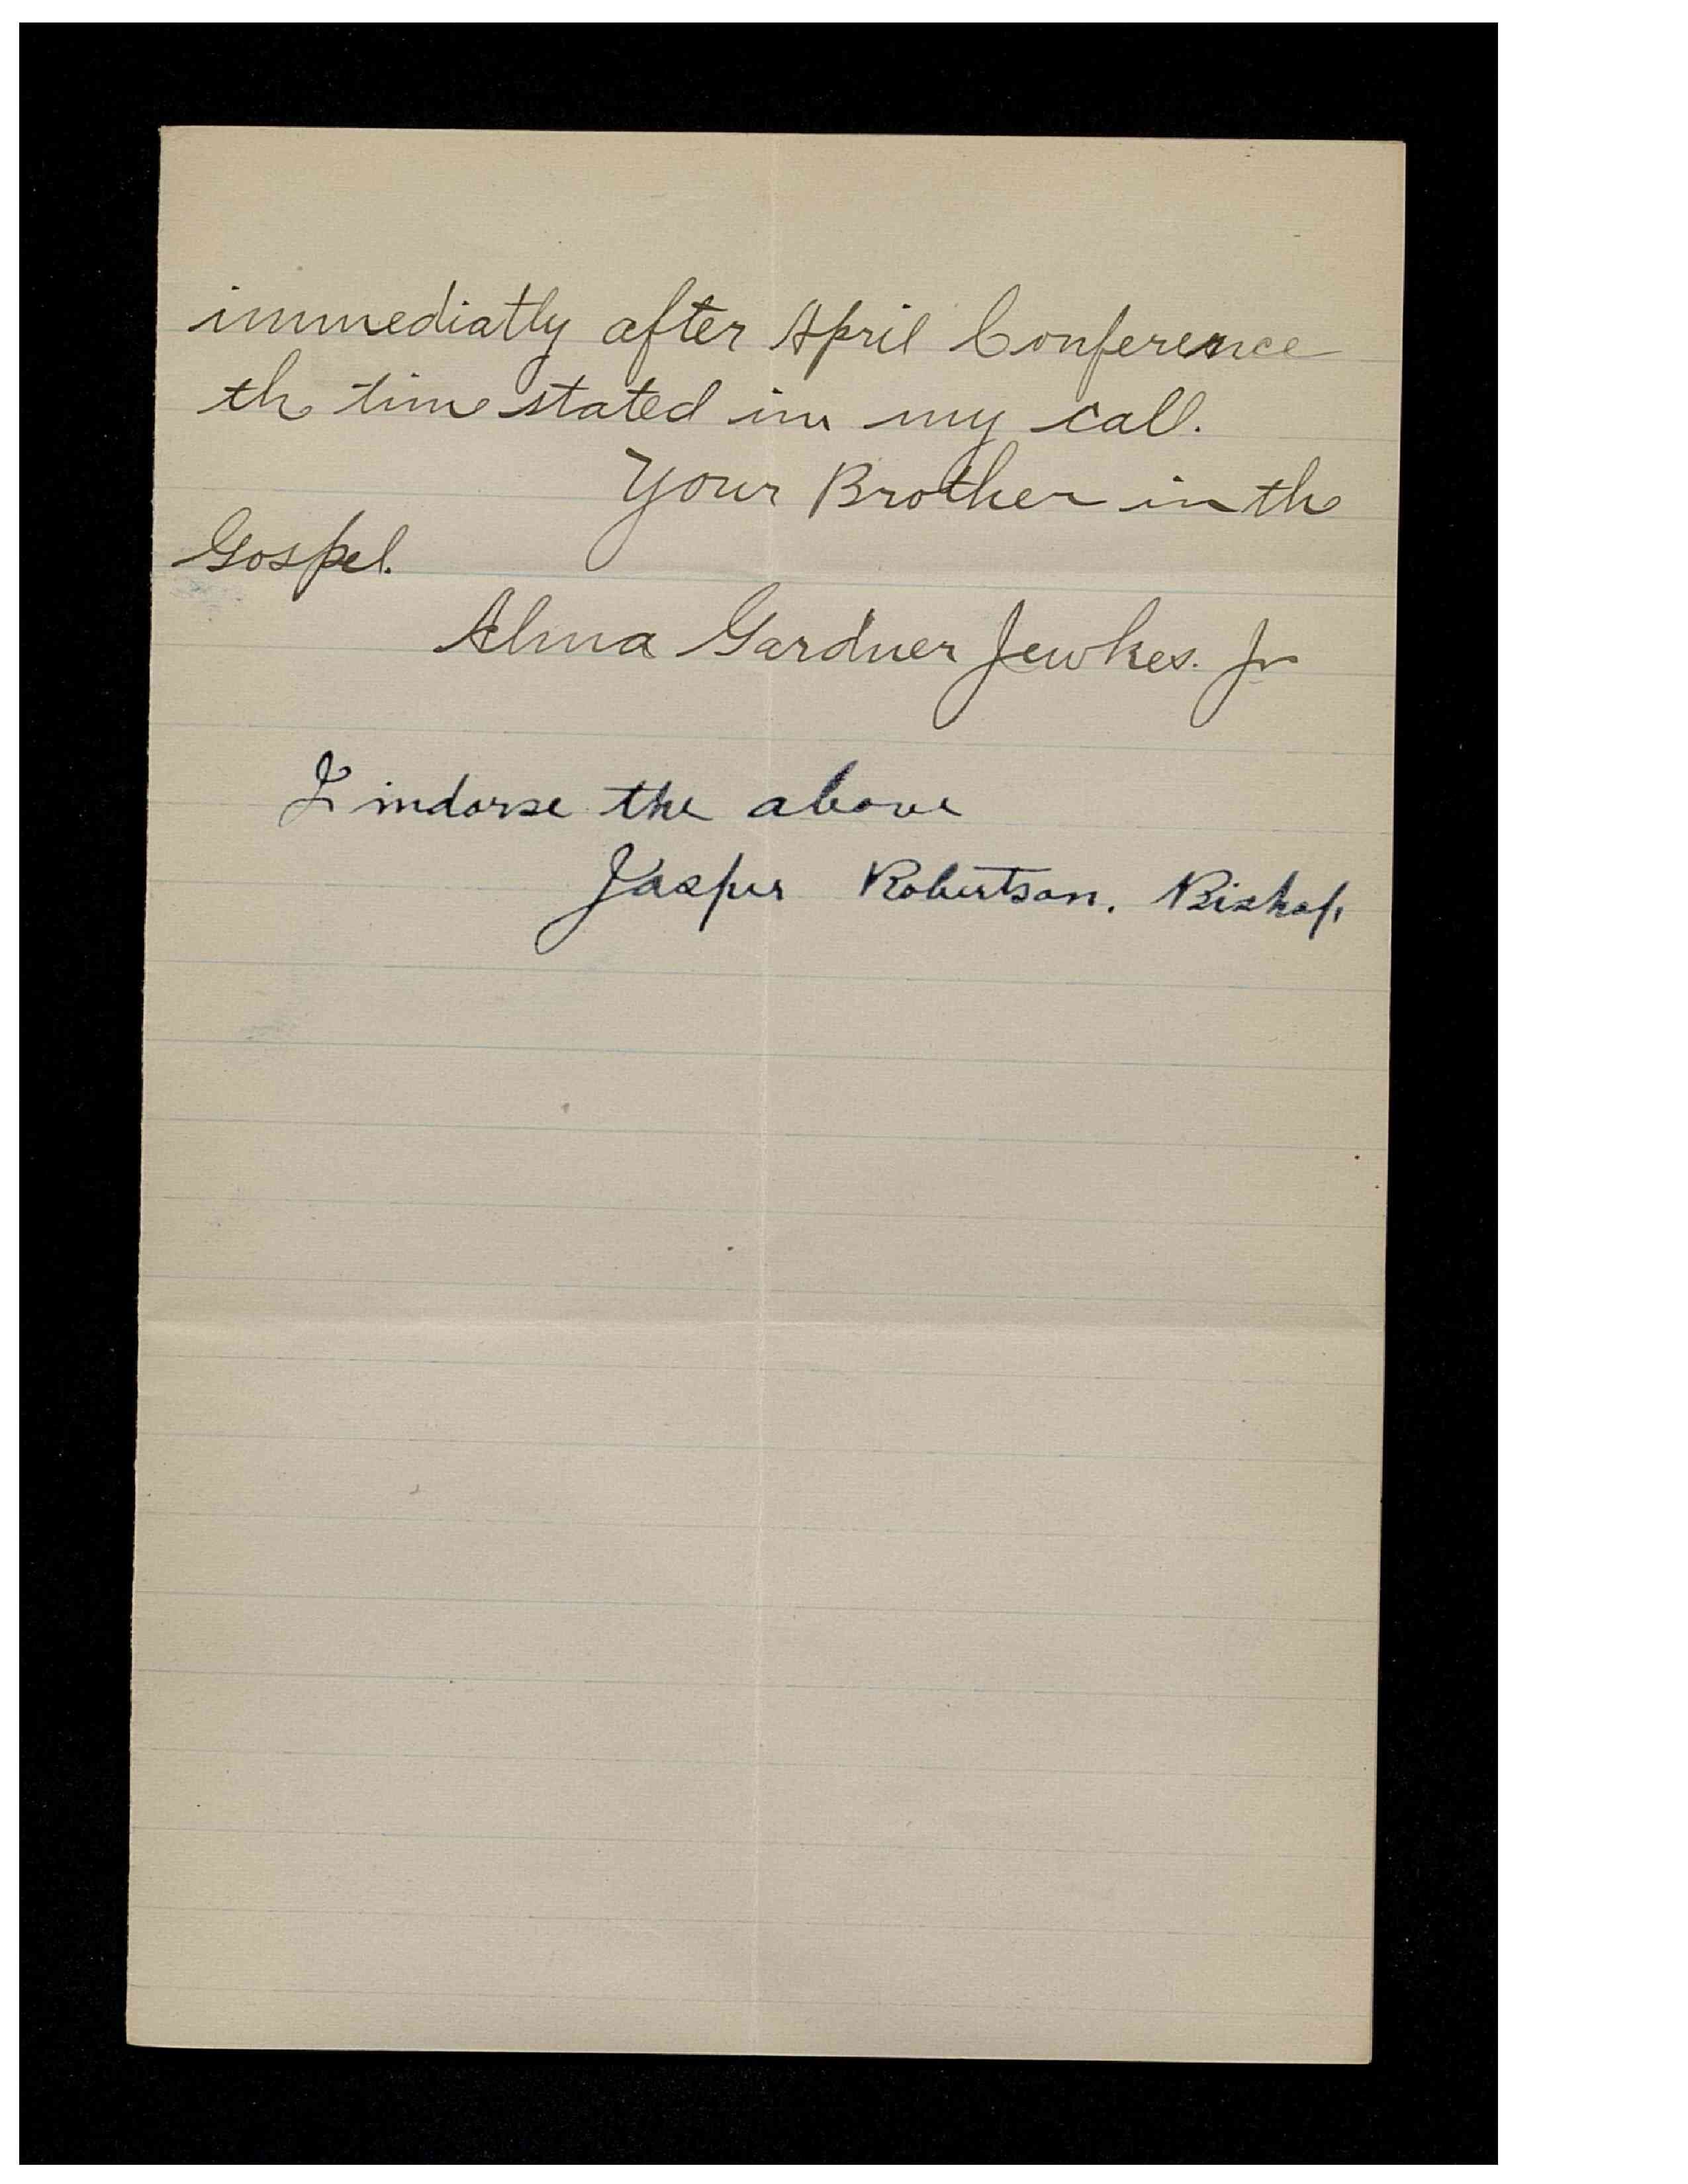 immediatly after April Conference
the time stated in my call.
Your Brother in the
Gospel.
Alma Gardner Jewkes. Jr
I indorse the above
Jasper Robertson. Bishop.